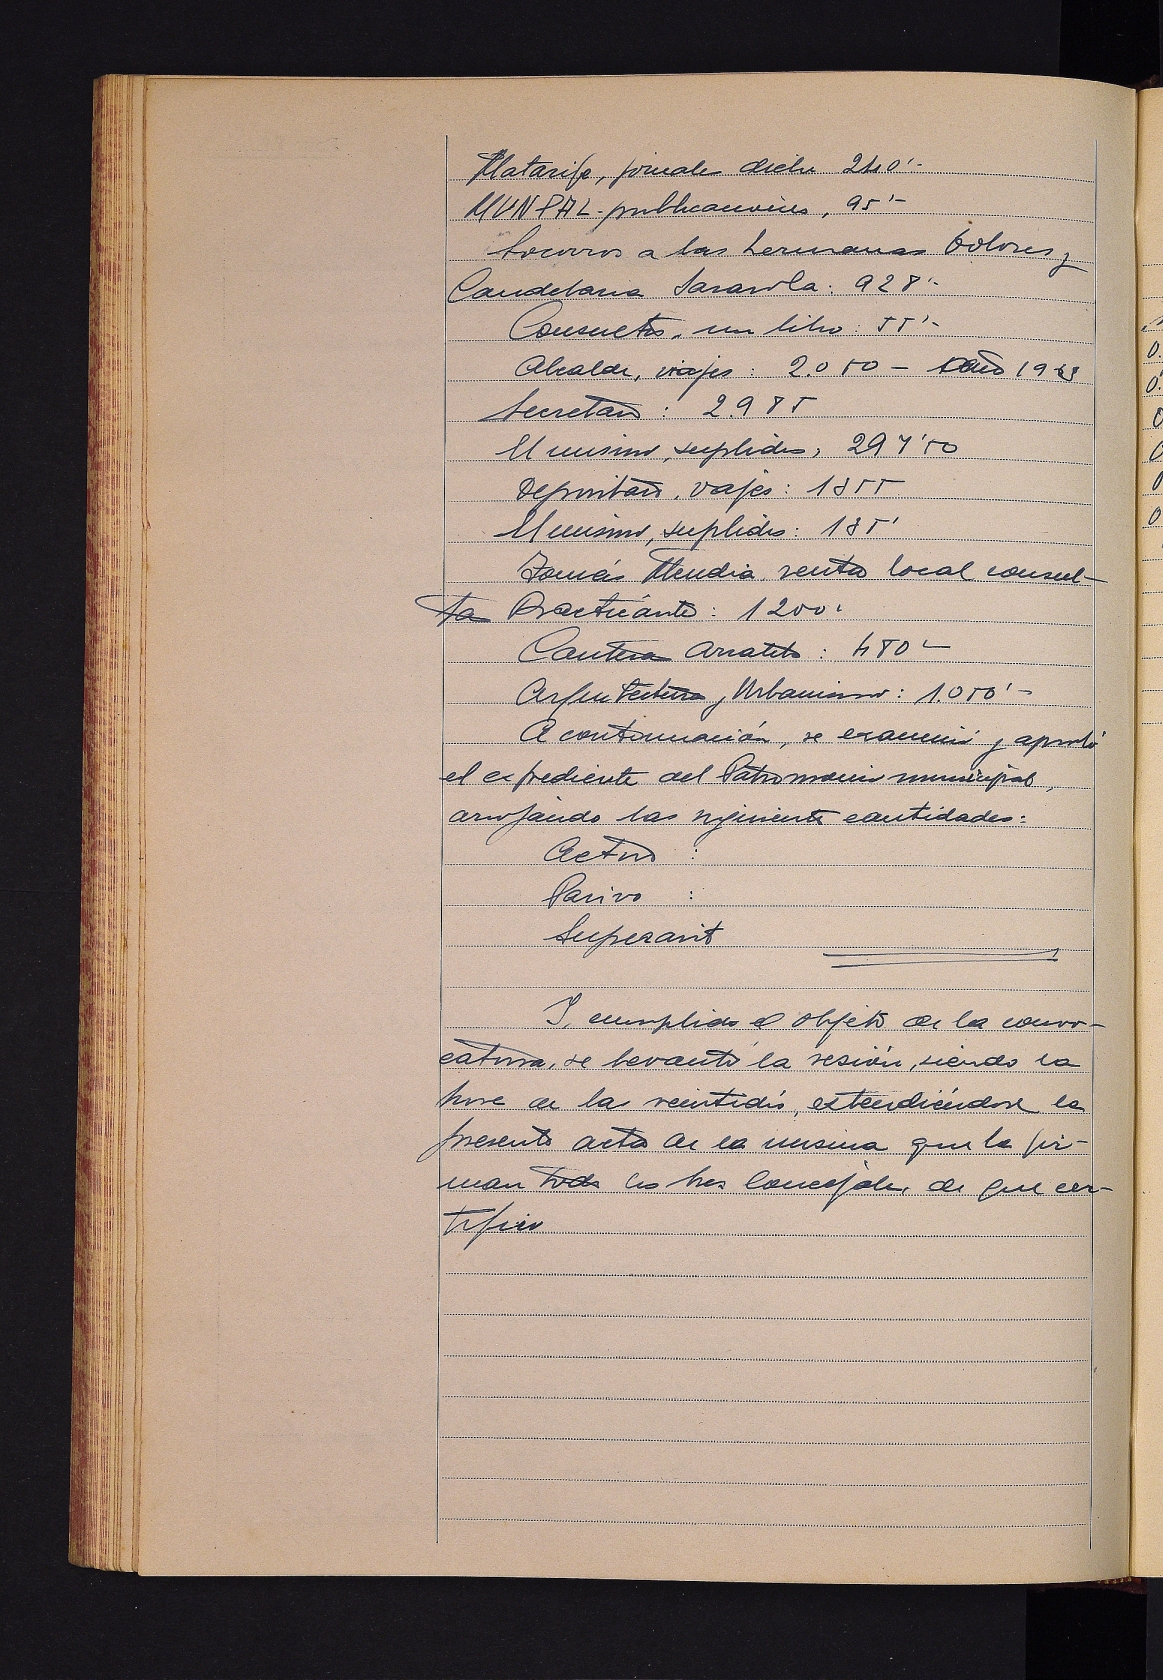 Matarife, jornales dicbre 240'-
MUNPAL-publicaciones, 95'-
Socorros a las hermanas Dolores y
Candelaria Sarasola: 928'-
Consuetos, un libro: 55'-
Alcalde, viajes: 2.050 - año 1963
Secretario: 2.985
El mismo, suplidos, 297'50
Depositario, viajes: 1855
El mismo, suplidos: 185'
Tomás Mendia, renta local consul-
ta Practicante: 1200'
Cantera Arrateta: 480'-
Arquitectura y Urbanismo: 1.050'-
A continuación, se examinó y aprobó
el expediente del Patrimonio municipal,
arrojando las siguientes cantidades:
Activo :
Pasivo :
Superavit
Y, cumplido el objeto de la convo-
catoria, se levantó la sesión, siendo la
hora de la veintidós, extendiéndose la
presente acta de la misma que la fir-
man todos los tres Concejales, de que cer-
tifico